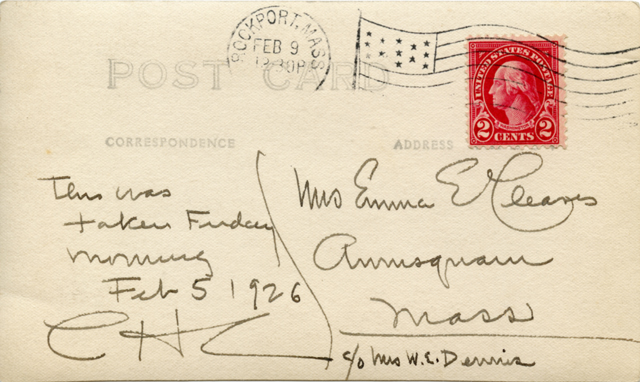 ROCKPORT, MASS.
FEB 9
12 30P
POST CARD
UNITED STATES POSTAGE
2 CENTS 2
CORRESPONDENCE
ADDRESS
This was
taken Friday
morning
Feb 5 1926
CHC
Mrs Emma E Cleaves
Annisquam
Mass
c/o Mrs W.E. Dennis